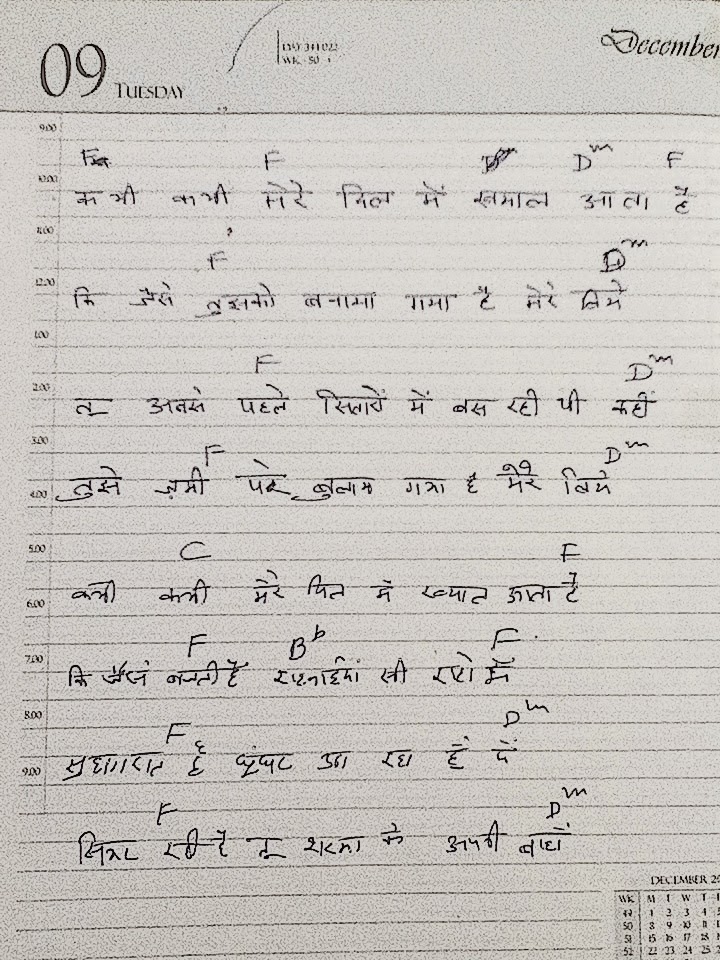 09 TUESDAY
WK - 50
December
9.00
F F Dm F
10.00
कभी कभी मेरे दिल में खयाल आता है
11.00
F Dm
12.00
कि जैसे तुझको बनाया गया है मेरे लिये
1.00
F Dm
2.00
तू अबसे पहले सितारों में बस रही थी कहीं
3.00
F Dm
4.00
तुझे ज़मी पर बुलाया गया है मेरे लिये
5.00
C F
6.00
कभी कभी मेरे दिल में ख्याल आता है
F Bb F
7.00
कि जैसे बजती है शहनाईयां सी राहों में
8.00
F Dm
9.00
सुहागरात है घूंघट उठा रहा हूं में
F Dm
सिमट रही है तू शरमा के अपनी बाहों
DECEMBER 20
WK M T W T F
49 1 2 3 4 5
50 8 9 10 11
51 15 16 17 18
52 22 23 24 25